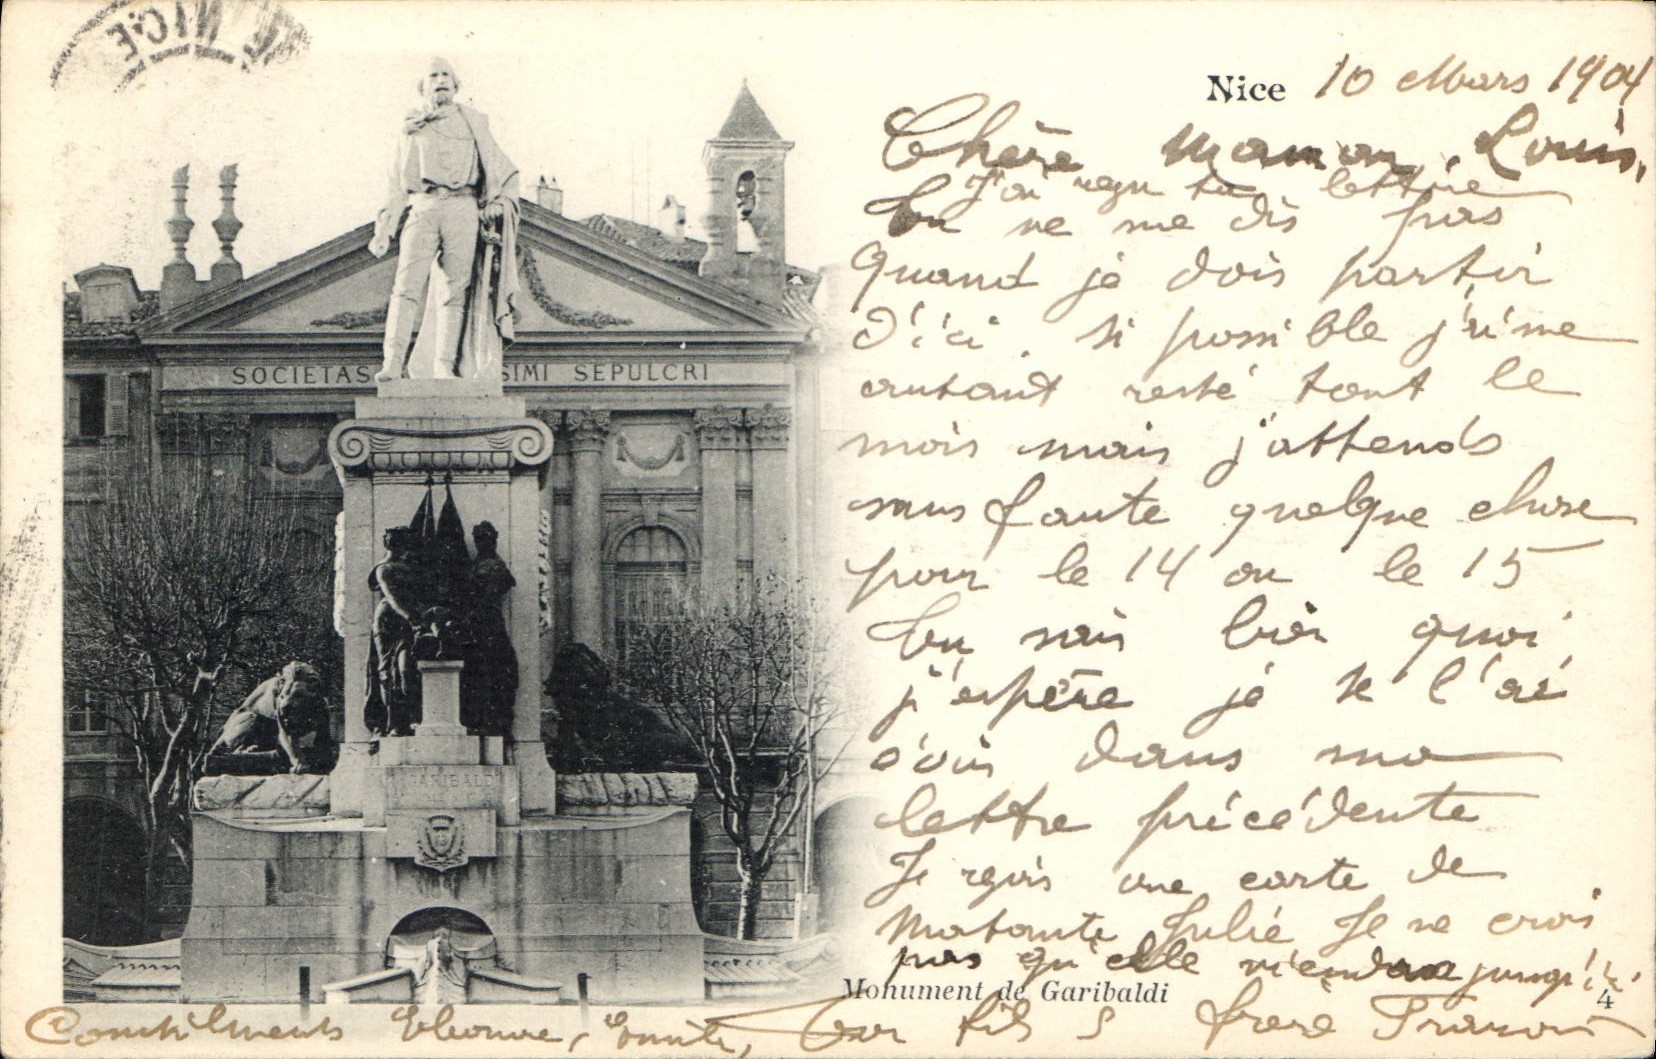 NICE
Nice 10 Mars 1904
Chère Maman, Louis,
J'ai reçu ta lettre
tu ne me dis pas
Quand je dois partir
d'ici. si possible j'aime
autant resté tout le
mois mais j'attends
sans faute quelque chose
pour le 14 ou le 15
tu sais bien quoi
j'espère je te l'ai
dans ma
lettre précédente
Je reçois une carte de
Matante Julie Je ne crois
pas qu'elle viendra jusqu'ici
SOCIETAS SIMI SEPULCRI
GARIBALDI
Monument de Garibaldi
4
Compliments Eleonore, Ton fils & frère François